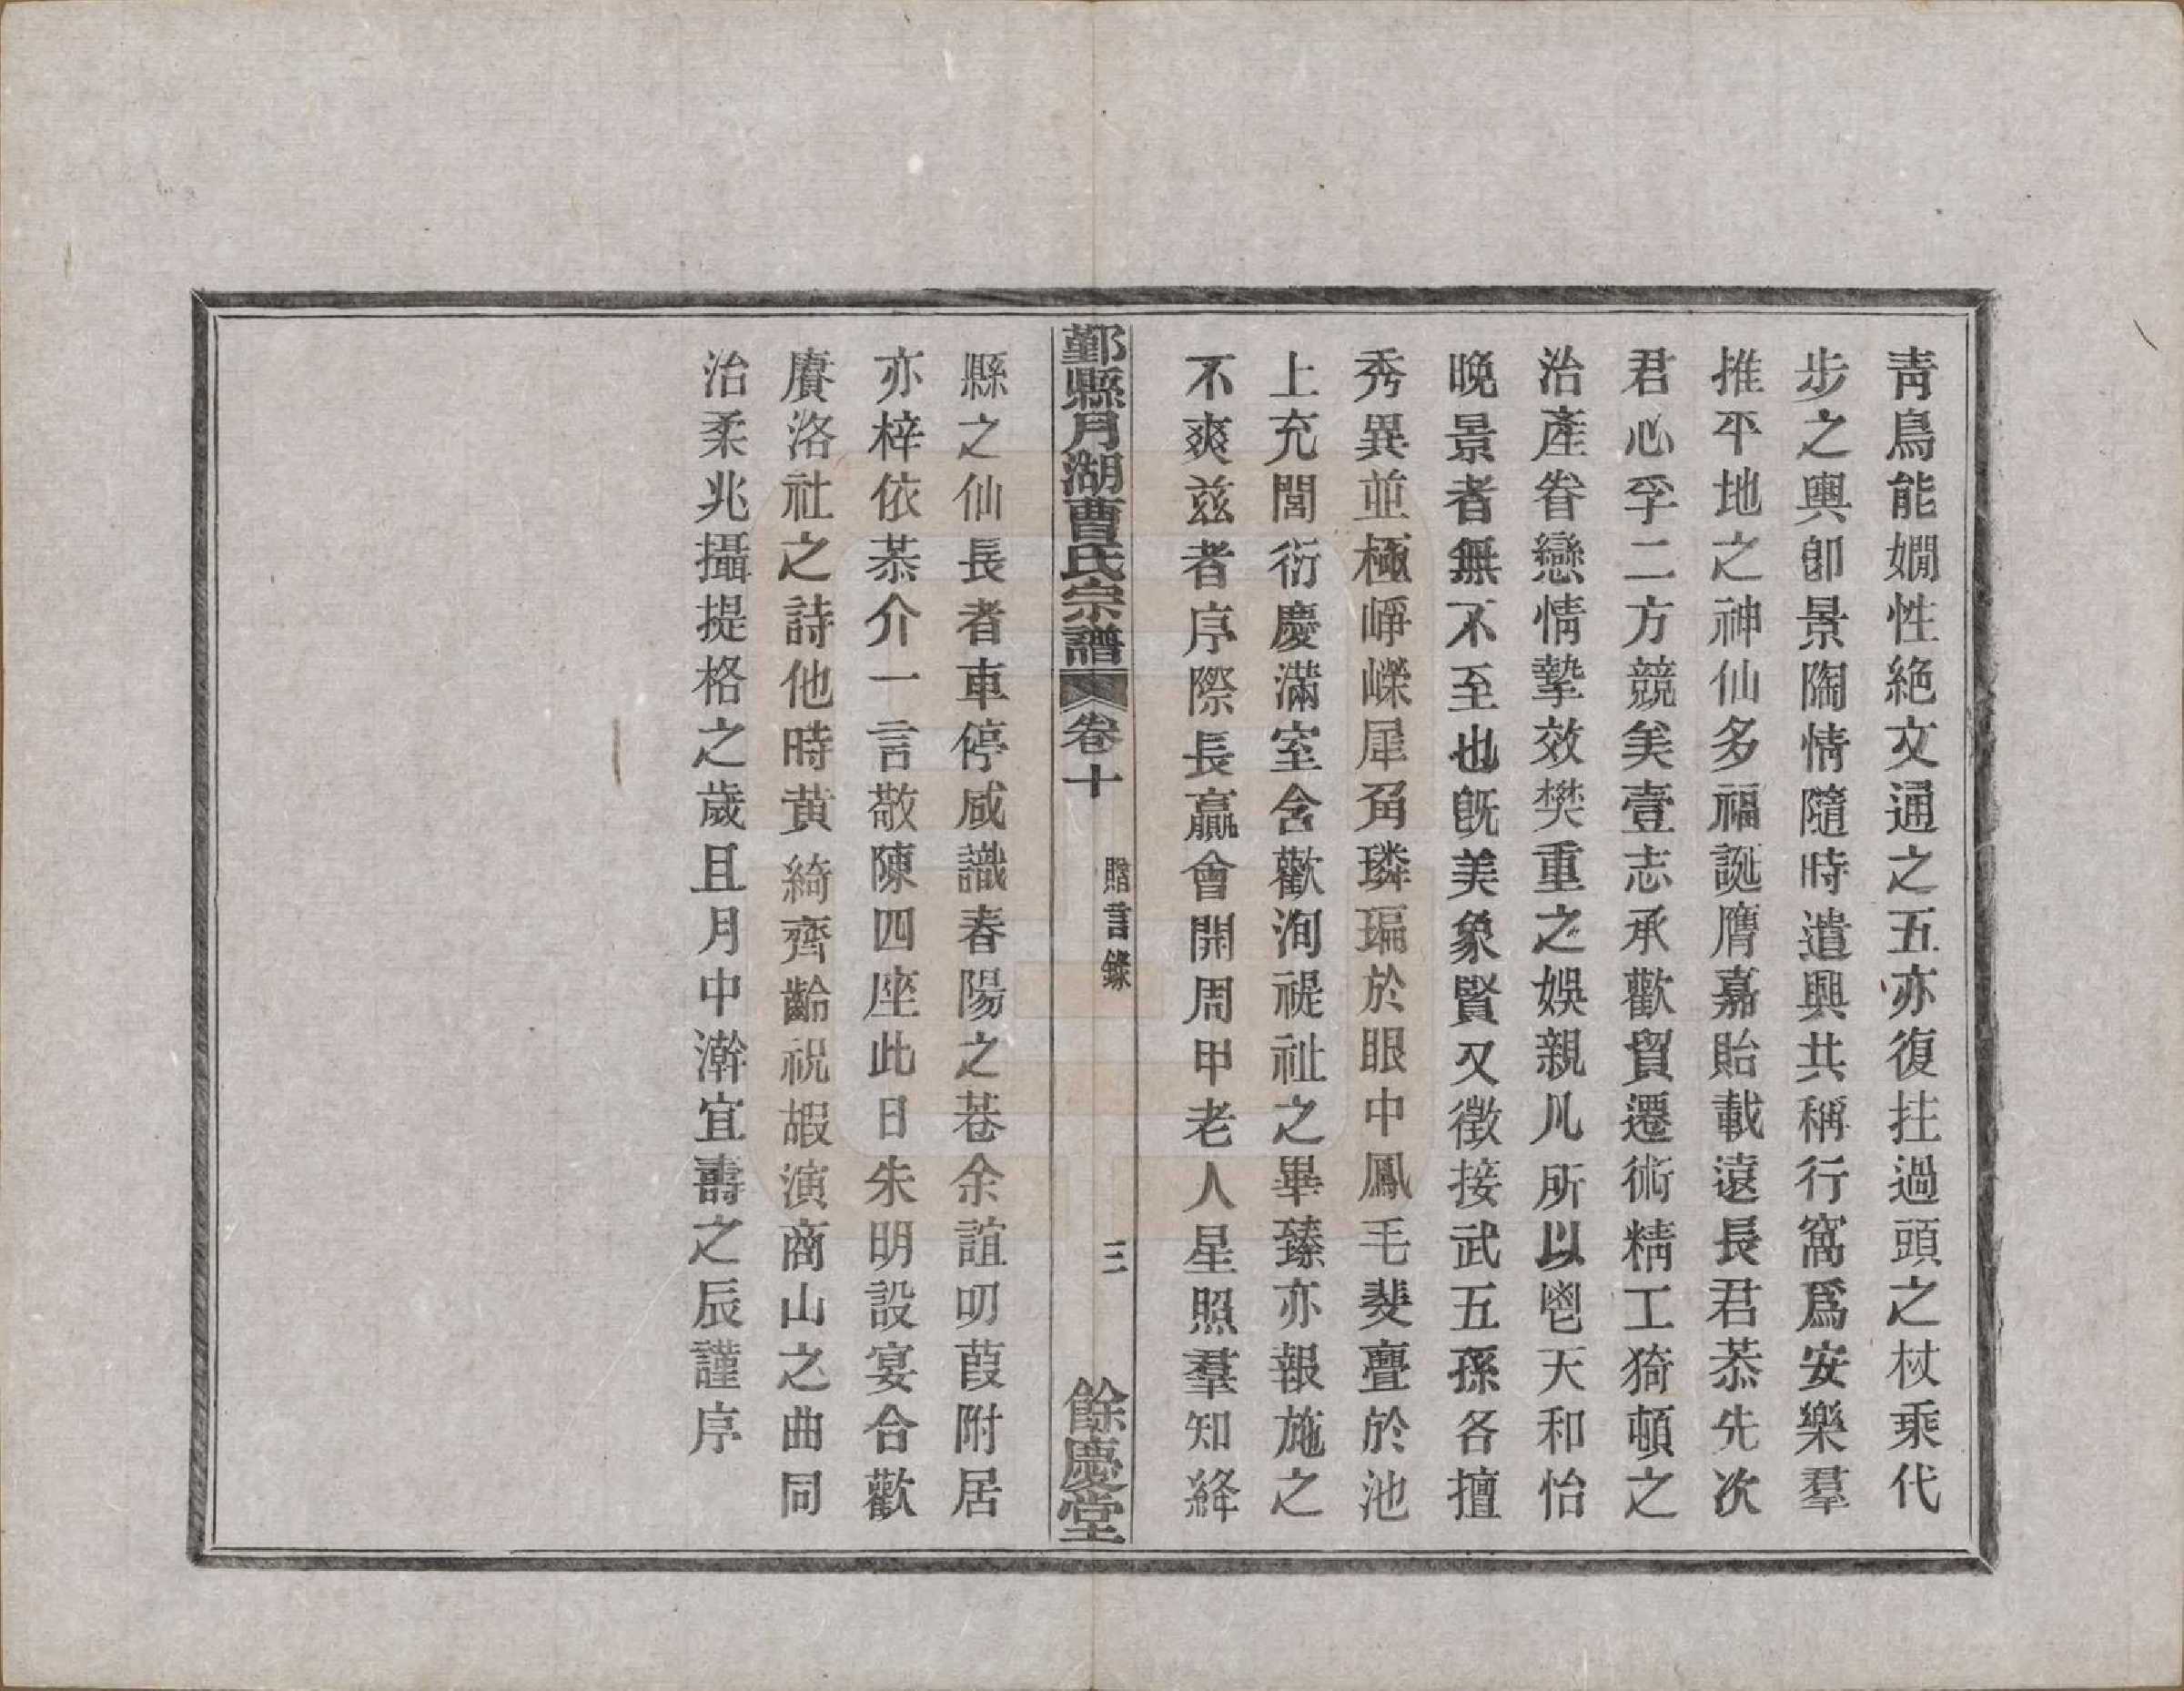 青鳥能嫺性絶文通之五亦復拄過頭之杖乘代
步之輿卽景陶情隨時遣興共稱行窩爲安樂羣
推平地之神仙多福誕膺嘉貽載遠長君恭先次
君心孚二方競矣壹志承歡貿遷術精工猗頓之
治產眷戀情摯效樊重之娛親凡所以鬯天和怡
晚景者無不至也旣美象賢又徵接武五孫各擅
秀異並極崢嶸犀角璘㻞於眼中鳳毛斐亹於池
上充閭衍慶滿室含歡洵禔祉之畢臻亦報施之
不爽茲者序際長贏會開周甲老人星照羣知絳
鄞縣月湖曹氏宗譜 卷十 贈言錄 三 餘慶堂
縣之仙長者車停咸識春陽之巷余誼叨葭附居
亦梓依恭介一言敬陳四座此日朱明設宴合歡
賡洛社之詩他時黃綺齊齡祝嘏演商山之曲同
治柔兆攝提格之歲且月中澣宜壽之辰謹序